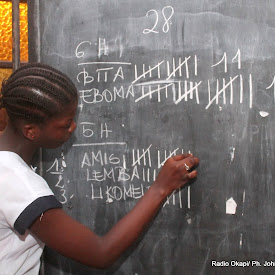 28
6 H I
11
EBOMA
5 H
1. AMIGI
2. LEMBA
3. LIKOMEL
Radio Okapi/ Ph. Joh